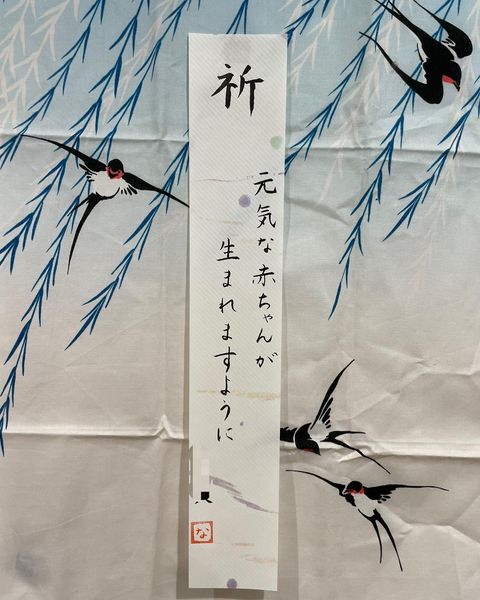 祈
元気な赤ちゃんが
生まれますように
な